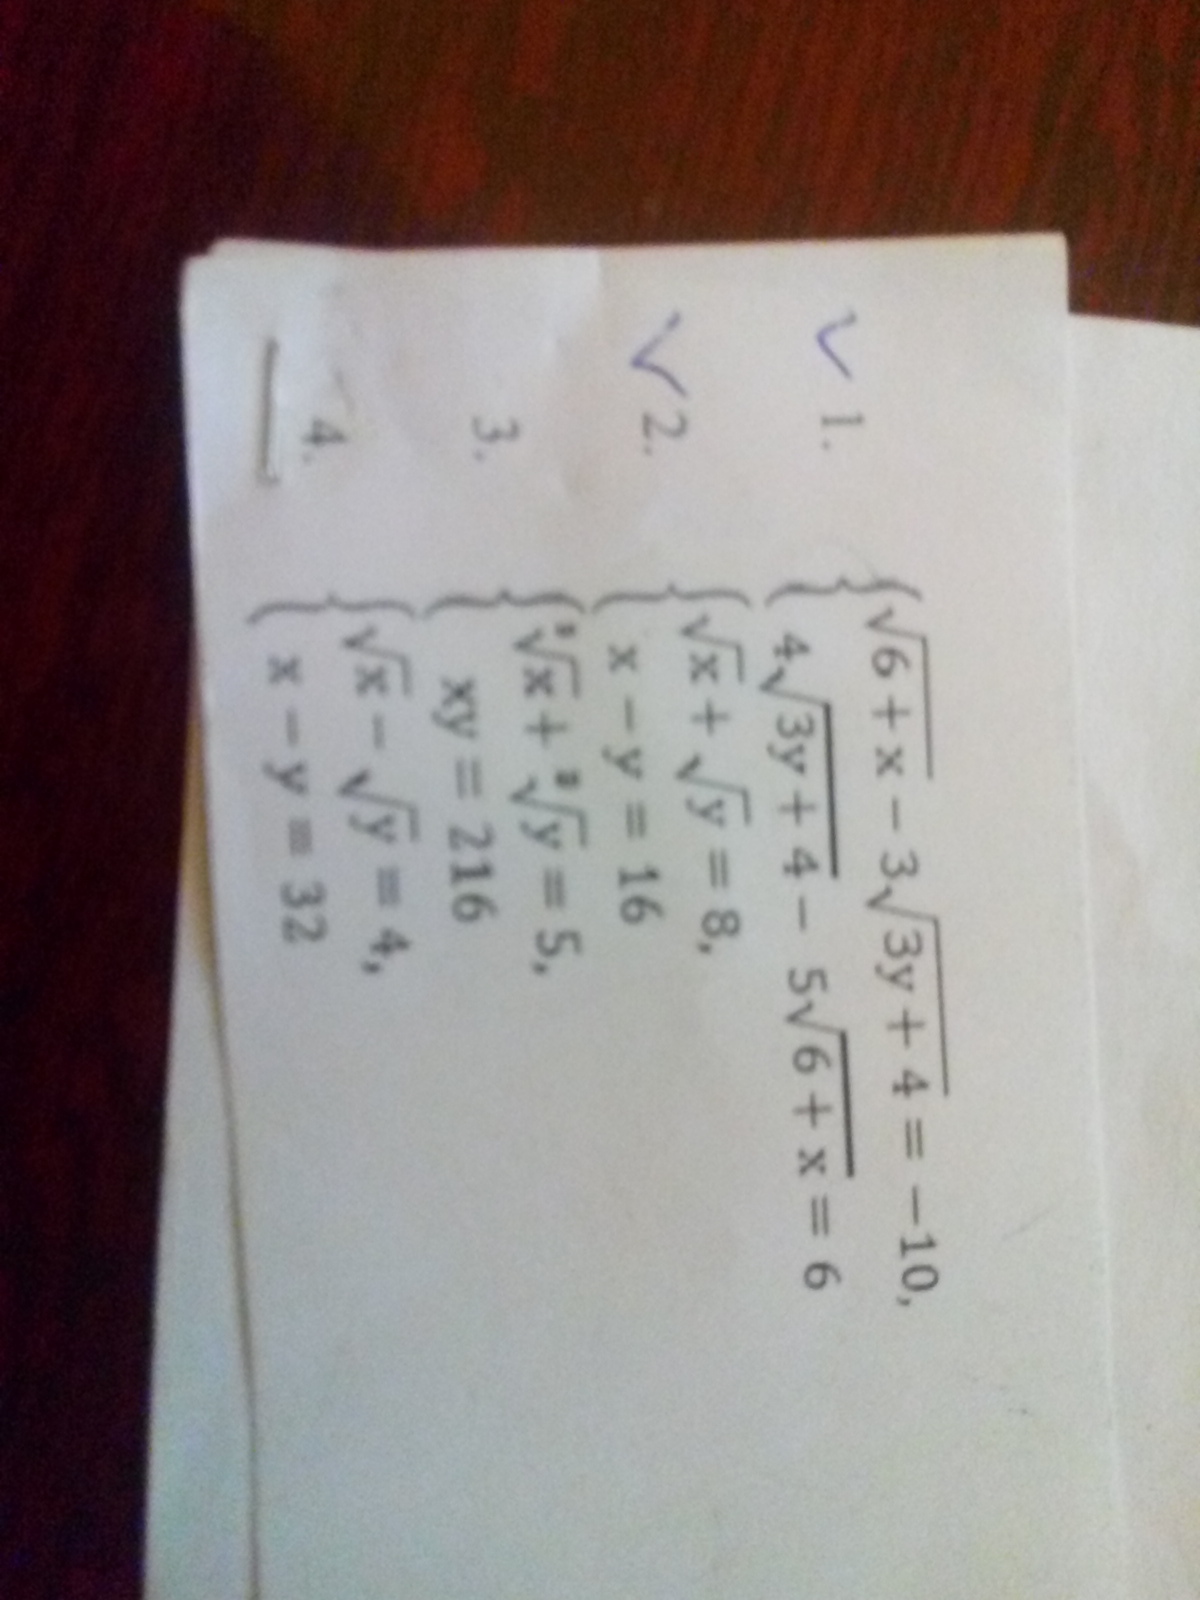 1. √(6 + x) − 3√(3y + 4) = −10,
4√(3y + 4) − 5√(6 + x) = 6
2. √x + √y = 8,
x − y = 16
3. ³√x + ³√y = 5,
xy = 216
4. √x − √y = 4,
x − y = 32